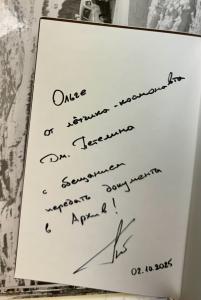 Ольге
от лётчика-космонавта
Дм. Петелина
с обещанием
передать документа
в Архив!
02.10.2025